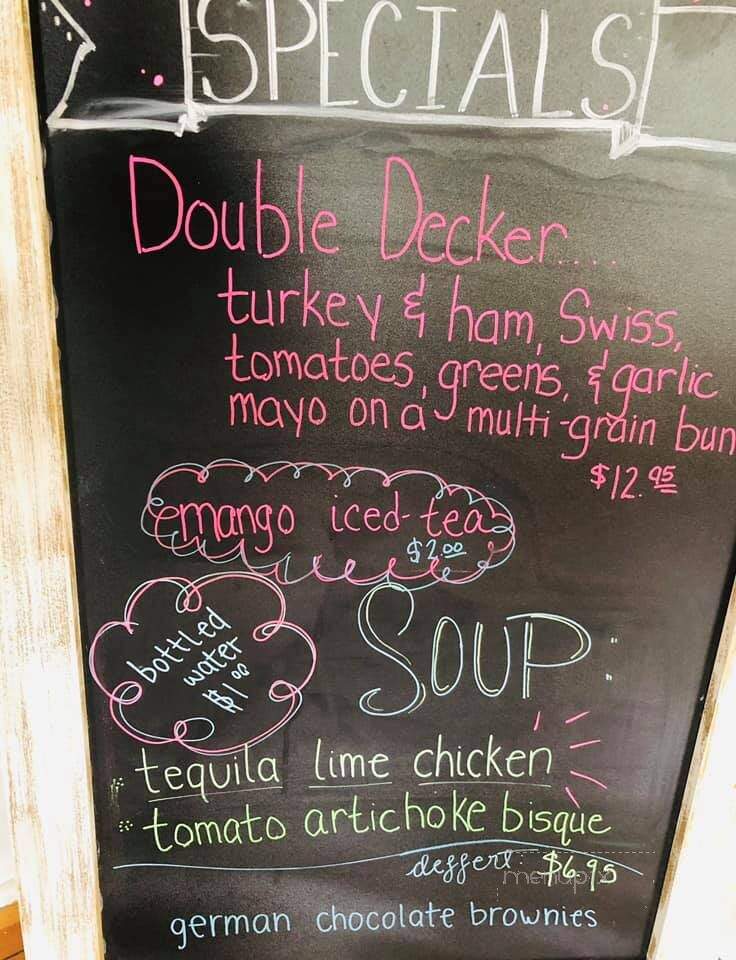 SPECIALS
Double Decker....
turkey & ham, Swiss,
tomatoes, greens, & garlic
mayo on a multi-grain bun
$12.95
mango iced-tea
$2.00
bottled
water
$1.00
SOUP:
tequila lime chicken
tomato artichoke bisque
$6.95
dessert
menupix
german chocolate brownies